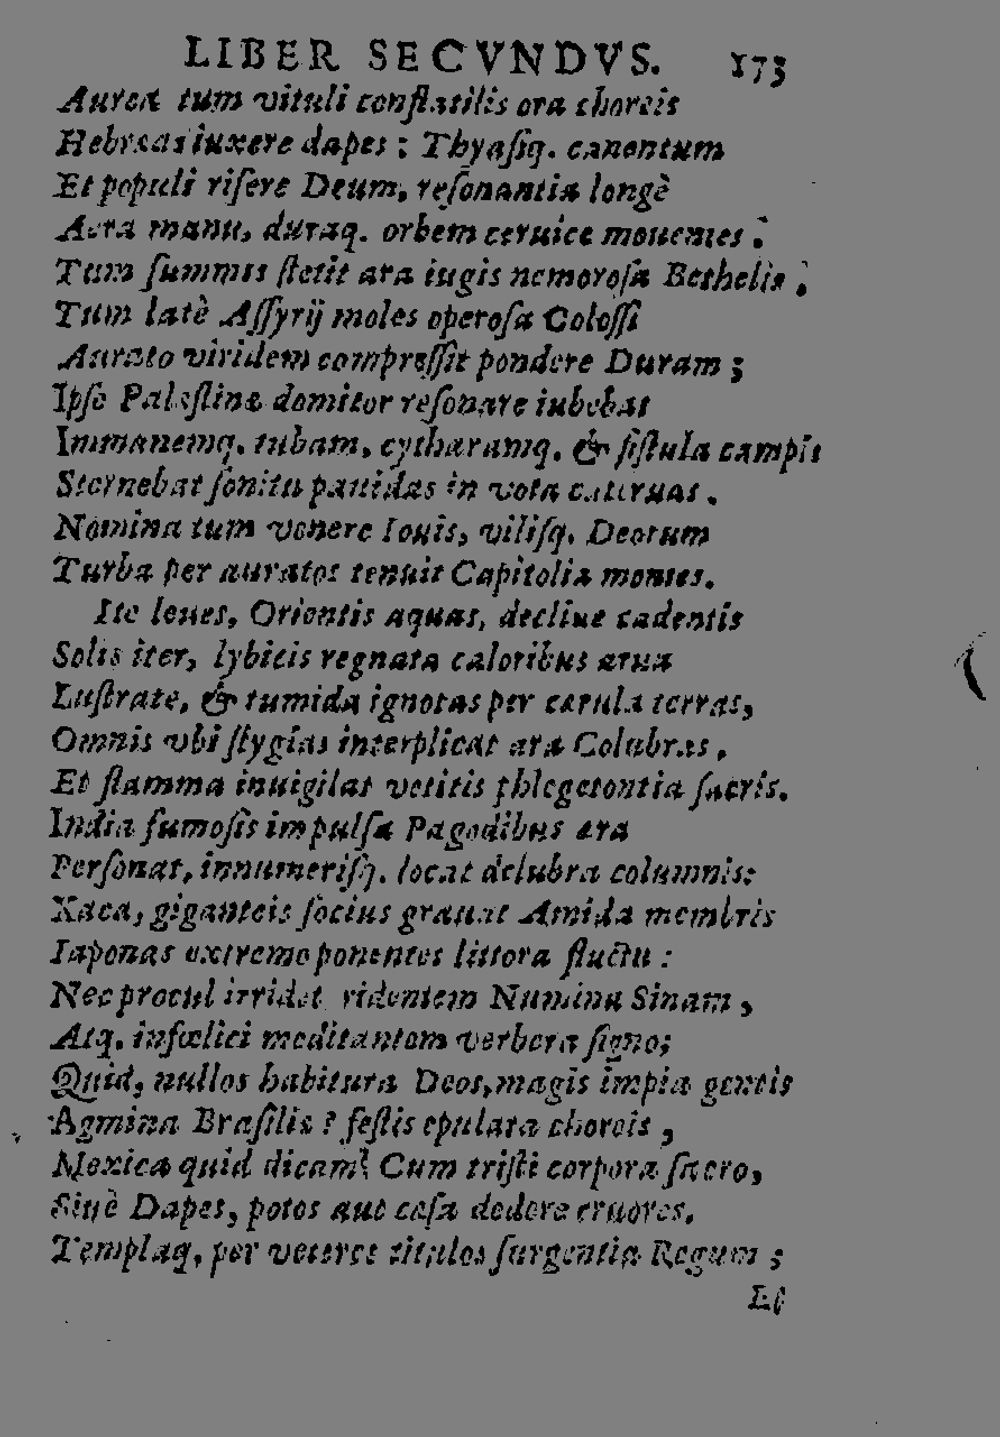 LIBER SECVNDVS. 173
Aurea tum vituli conflatilis ora choreis
Hebræas iuxere dapes : Thyaſiq. canentum
Et populi riſere Deum, reſonantia longè
Aera manu, duraq. orbem ceruice mouentes :
Tum ſummis ſtetit ara iugis nemoroſa Bethelis ;
Tum latè Aſſyrij moles operoſa Coloſſi
Aurato viridem compreſſit pondere Duram ;
Ipſe Paleſtinæ domitor reſonare iubebat
Immanemq. tubam, cytharamq. & fiſtula campis
Sternebat ſonitu pauidas in vota cateruas.
Nomina tum venere Iouis, viliſq. Deorum
Turba per auratos tenuit Capitolia montes.
Ite leues, Orientis aquas, decliue cadentis
Solis iter, lybicis regnata caloribus arua
Luſtrate, & tumida ignotas per cærula terras,
Omnis vbi ſtygias interplicat ara Colubras,
Et flamma inuigilat vetitis phlegetontia ſacris.
India fumoſis impulſa Pagodibus æra
Perſonat, innumeriſq. locat delubra columnis:
Xaca, giganteis ſocius grauat Amida membris
Iaponas extremo ponentes littora fluctu :
Nec procul irridet ridentem Numina Sinam,
Atq. infœlici meditantem verbera ſigno;
Quid, nullos habitura Deos, magis impia gentis
Agmina Braſilis ? feſtis epulata choreis,
Mexica quid dicam? Cum triſti corpora ſacro,
Siuè Dapes, potos aut cæſa dedere cruores.
Templaq. per veteres titulos ſurgentia Regum ;
Et